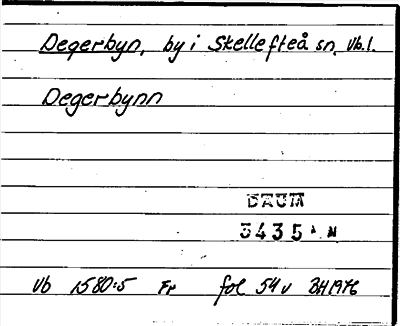 Degerbyn, by i Skellefteå sn, Vb.l.
Degerbynn
DAUM
3435 N
Vb 1580:5 Fr fol 54 v BH 1976